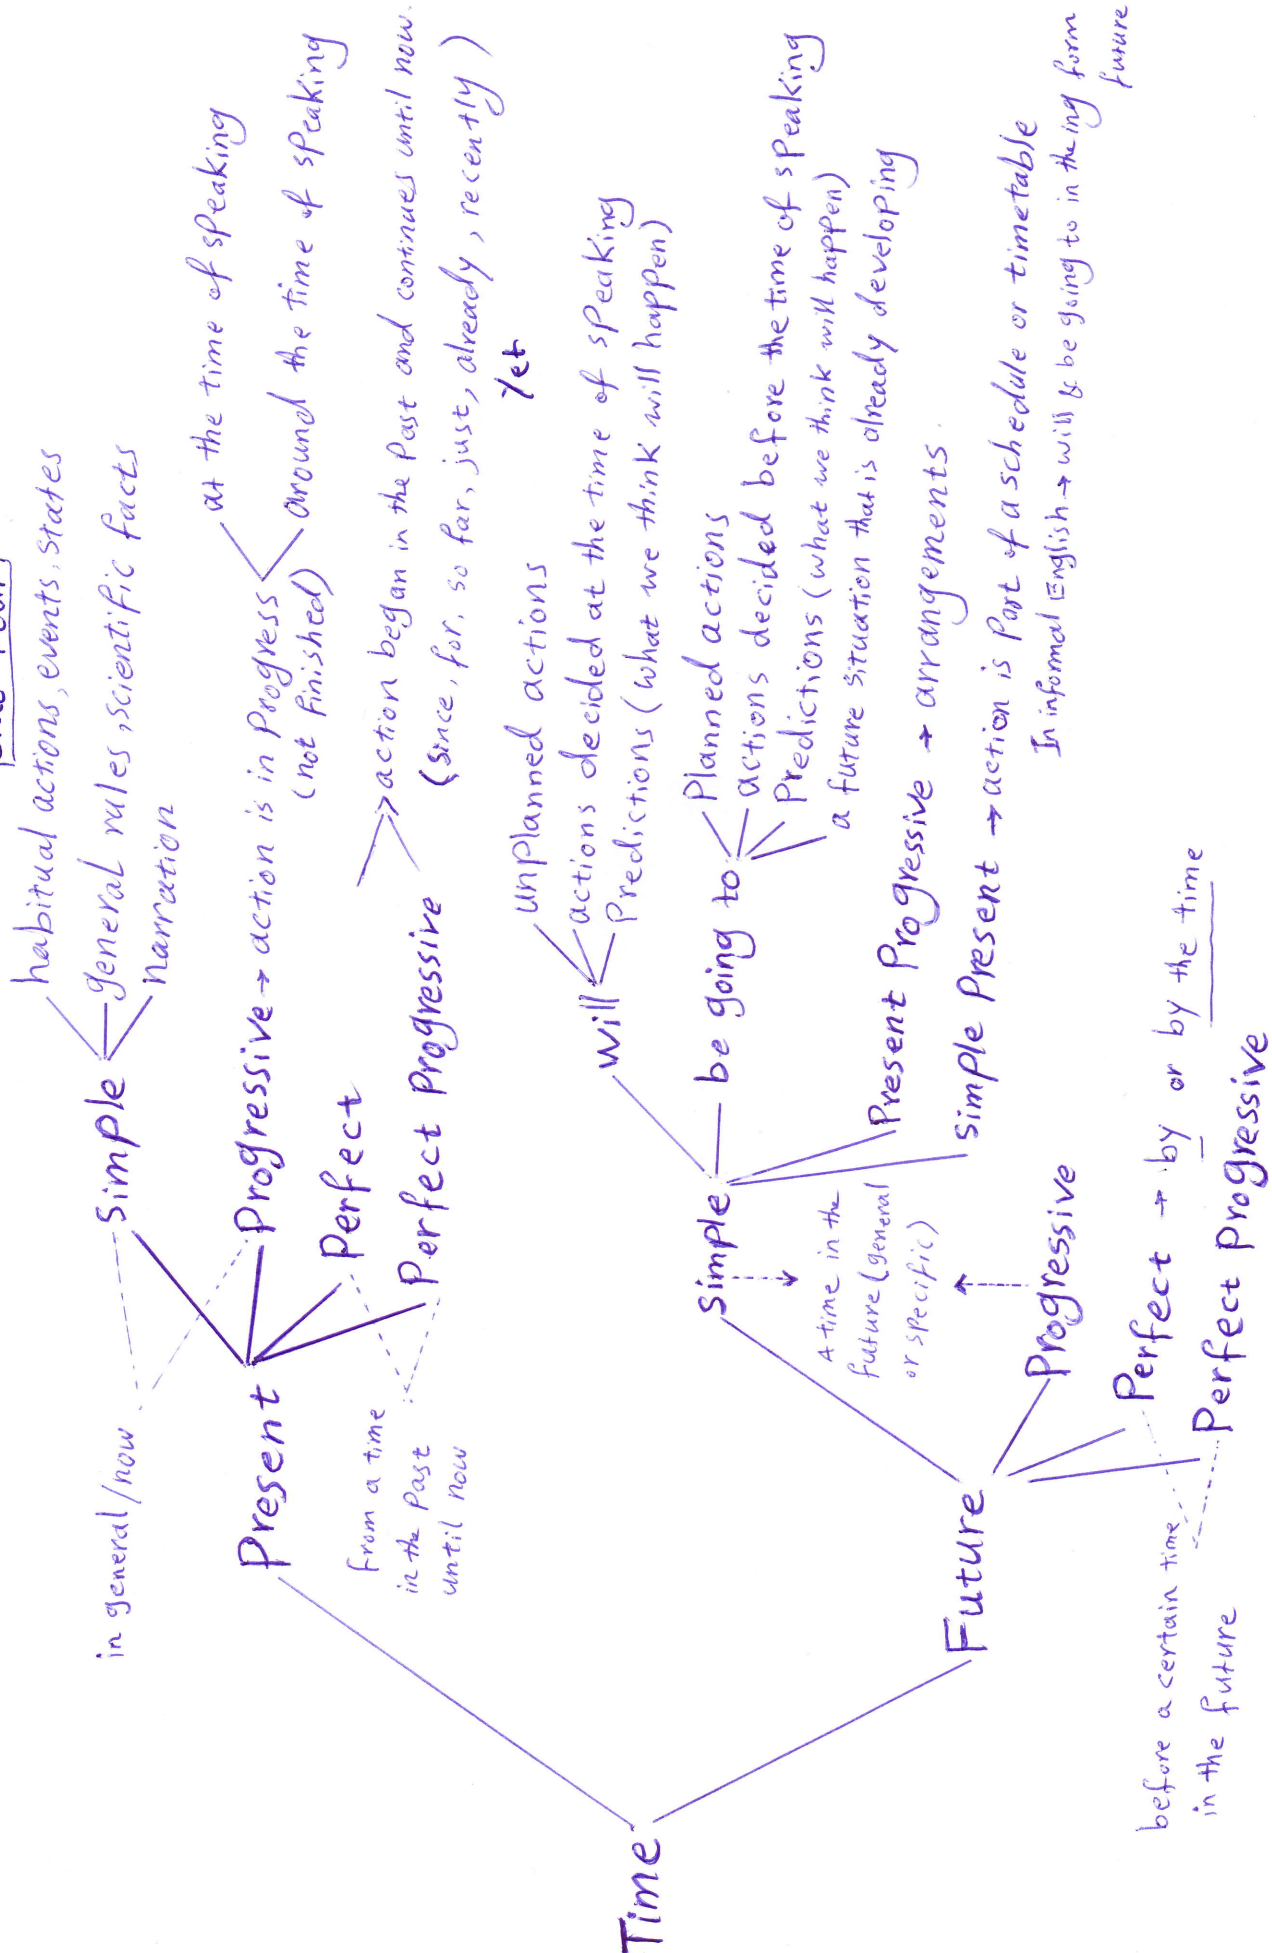 habitual actions, events, states
general rules, scientific facts
narration
in general/now
Simple
Present
Progressive → action is in Progress
(not finished)
at the time of speaking
around the time of speaking
Perfect
Perfect Progressive
action began in the Past and continues until now.
(since, for, so far, just, already, recently)
Yet
from a time
in the Past
until now
Time
Future
Simple
will
unplanned actions
actions decided at the time of speaking
Predictions (what we think will happen)
be going to
Planned actions
actions decided before the time of speaking
Predictions (what we think will happen)
a future situation that is already developing
Present Progressive → arrangements.
Simple Present → action is Part of a schedule or timetable
In informal English → will & be going to in the ing form
future
A time in the
future (general
or specific)
Progressive
Perfect → by or by the time
Perfect Progressive
before a certain time
in the future